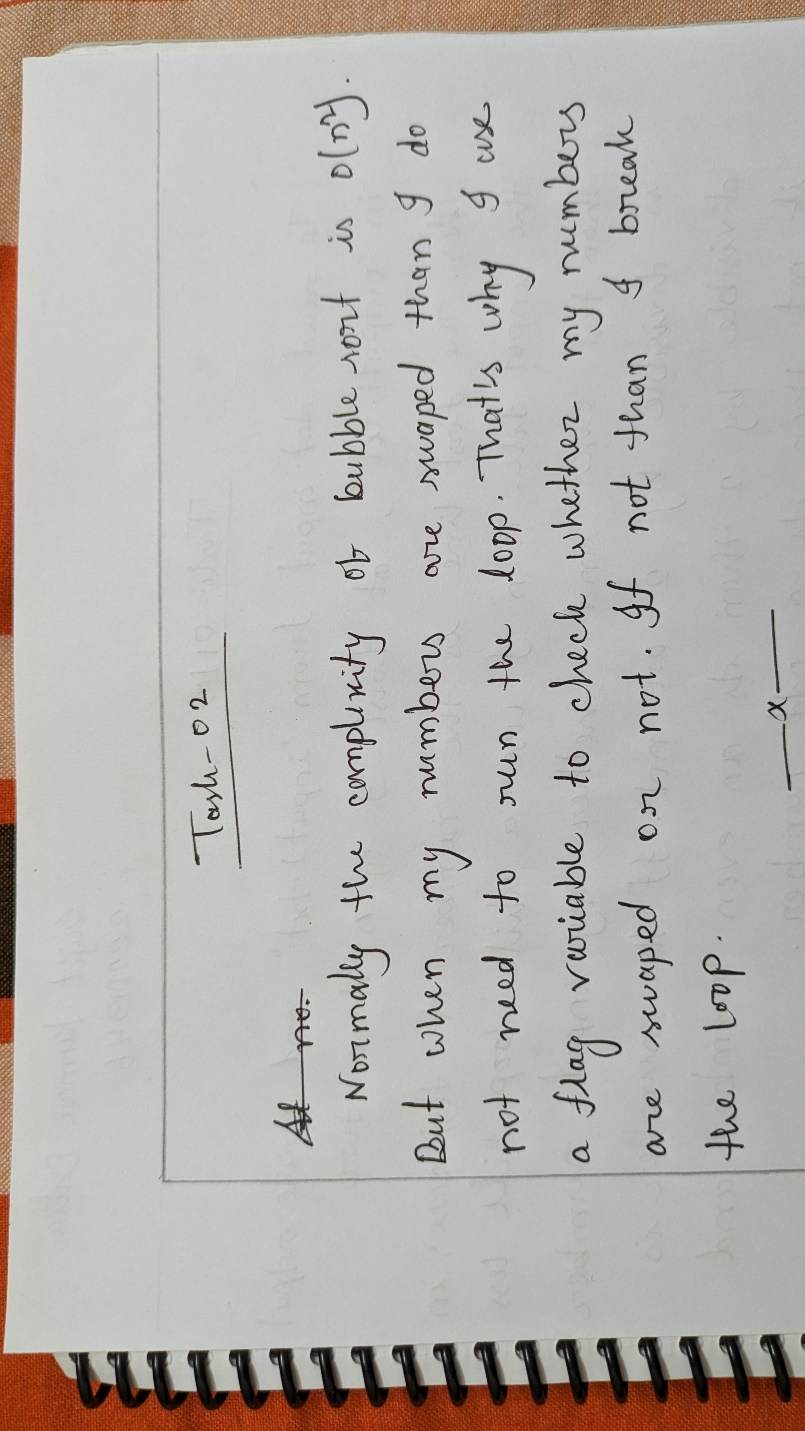 Task-02
At no.
Normally the complexity of bubble sort is O(n²).
But when my numbers are swaped than I do
not need to run the loop. That's why I use
a flag variable to check whether my numbers
are swaped or not. If not than I break
the loop.
—x—